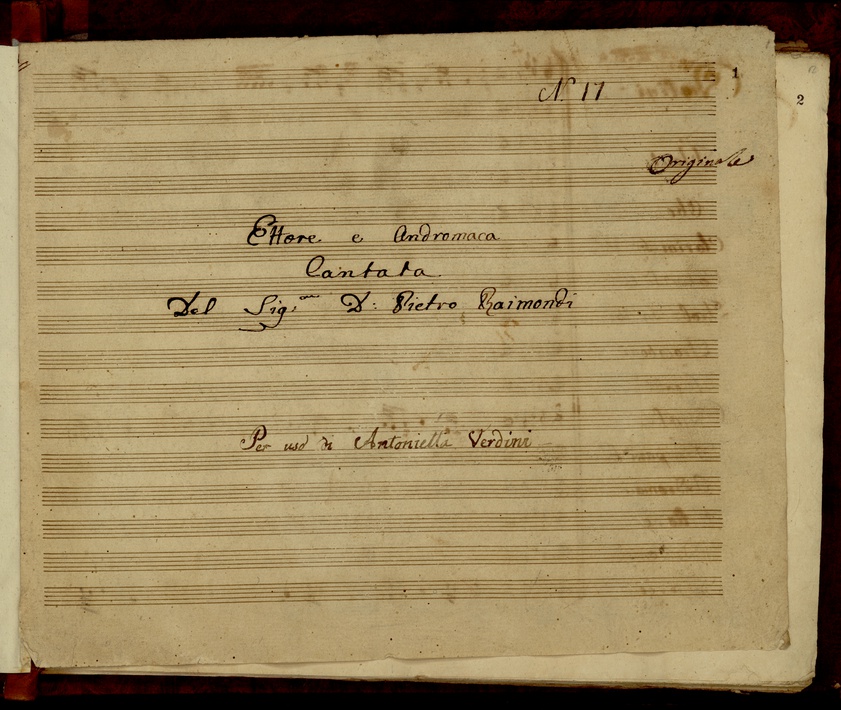 1
2
N.º 17
Originale
Ettore e Andromaca
Cantata
Del Sig.re D: Pietro Raimondi
Per uso di Antoniella Verdini